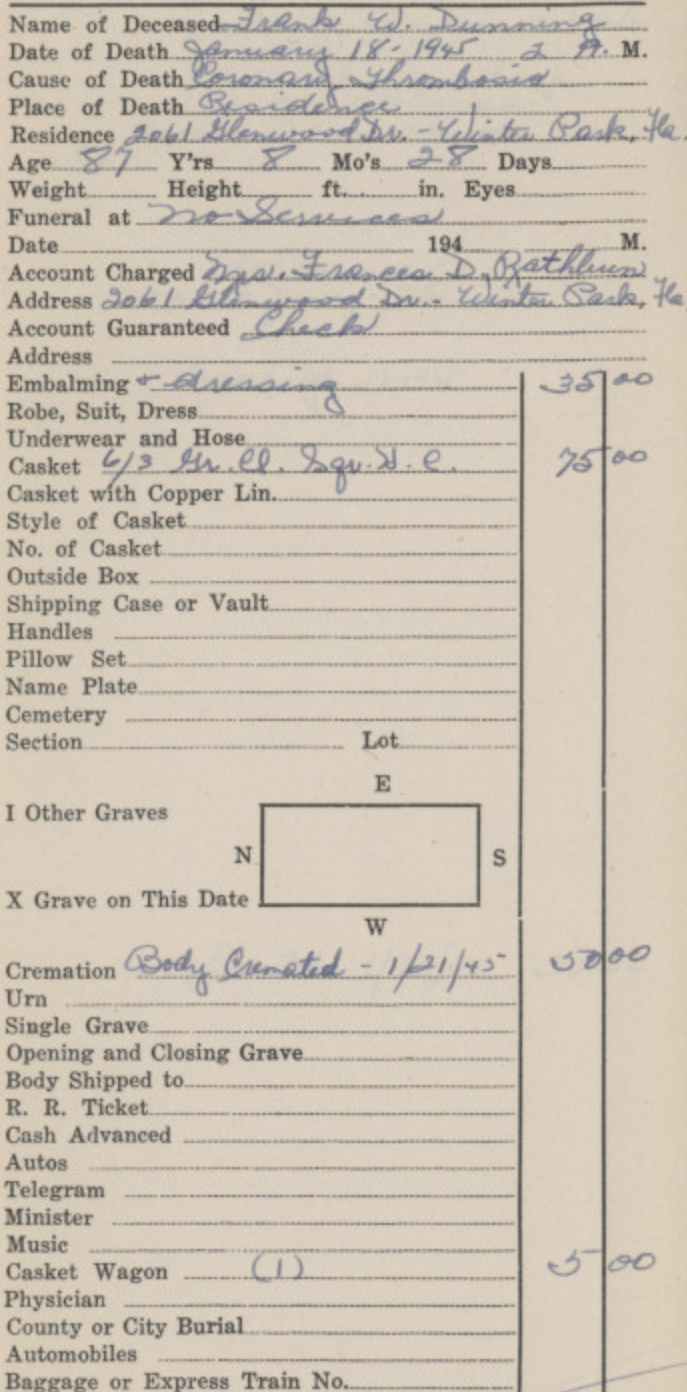 Name of Deceased Frank W. Dunning
Date of Death January 18-1945 2 A. M.
Cause of Death Coronary Thrombosis
Place of Death Residence
Residence 2061 Glenwood Dr. - Winter Park, Fla.
Age 87 Y'rs 8 Mo's 28 Days
Weight Height ft. in. Eyes
Funeral at No Services
Date 194 M.
Account Charged Mrs. Frances D. Rathbun
Address 2061 Glenwood Dr. - Winter Park, Fla
Account Guaranteed Check
Address
Embalming & dressing 35 00
Robe, Suit, Dress
Underwear and Hose
Casket 6/3 Gr. Cl. Sqr. D. C. 75 00
Casket with Copper Lin.
Style of Casket
No. of Casket
Outside Box
Shipping Case or Vault
Handles
Pillow Set
Name Plate
Cemetery
Section Lot
E
I Other Graves
N S
X Grave on This Date
W
Cremation Body Cremated - 1/21/45 50 00
Urn
Single Grave
Opening and Closing Grave
Body Shipped to
R. R. Ticket
Cash Advanced
Autos
Telegram
Minister
Music
Casket Wagon (1) 5 00
Physician
County or City Burial
Automobiles
Baggage or Express Train No.